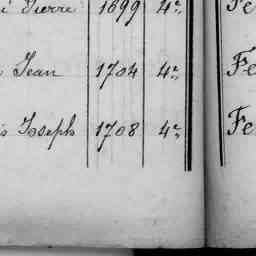 Pierre 1699 4e. Fe
Jean 1704 4e. Fe
s Joseph 1708 4e. Fe